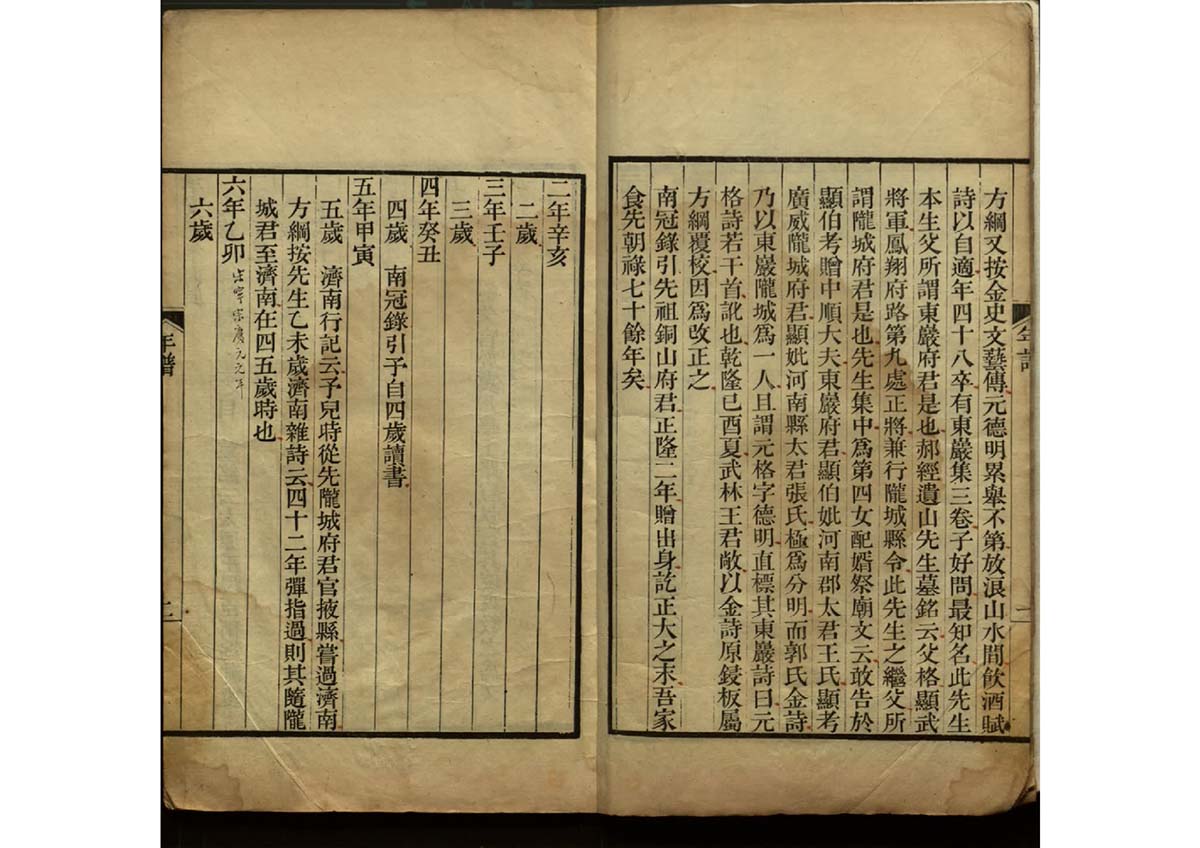 方綱又按金史文藝傳元德明累舉不第放浪山水間飲酒賦
詩以自適年四十八卒有東巖集三卷子好問最知名此先生
本生父所謂東巖府君是也郝經遺山先生墓銘云父格顯武
將軍鳳翔府路第九處正將兼行隴城縣令此先生之繼父所
謂隴城府君是也先生集中爲第四女配婿祭廟文云敢告於
顯伯考贈中順大夫東巖府君顯伯妣河南郡太君王氏顯考
廣威隴城府君顯妣河南縣太君張氏極爲分明而郭氏金詩
乃以東巖隴城爲一人且謂元格字德明直標其東巖詩曰元
格詩若干首訛也乾隆己酉夏武林王君敞以金詩原鋟板屬
方綱覆校因爲改正之
南冠錄引先祖銅山府君正隆二年贈出身訖正大之末吾家
食先朝祿七十餘年矣
年譜
一
二年辛亥
二歲
三年壬子
三歲
四年癸丑
四歲 南冠錄引予自四歲讀書
五年甲寅
五歲 濟南行記云予兒時從先隴城府君官掖縣嘗過濟南
方綱按先生乙未歲濟南雜詩云四十二年彈指過則其隨隴
城君至濟南在四五歲時也
六年乙卯 宋寧宗慶元元年
六歲
年譜
二